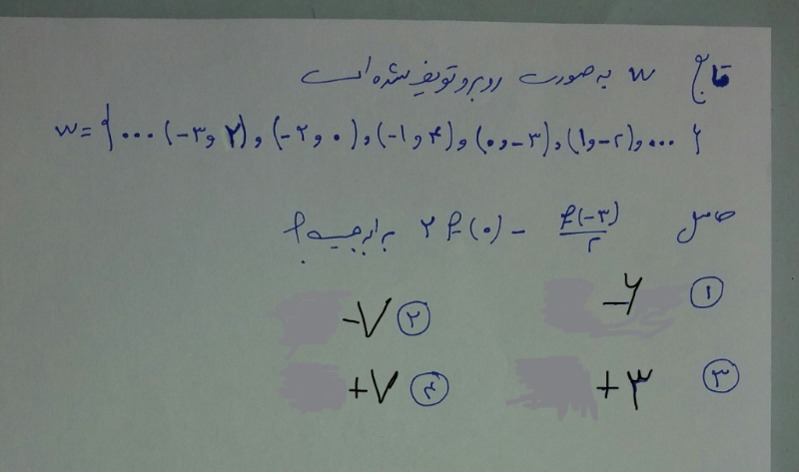 تابع w به صورت روبرو توصیف شده است
w = { ... (-۳ و ۲) و (-۲ و ۰) و (-۱ و ۴) و (۰ و -۳) و (۱ و -۲) و ... }
حاصل ۲f(۰) - f(-۳)/۲ برابر چیست؟
① -۶ ② -۷
③ +۳ ④ +۷